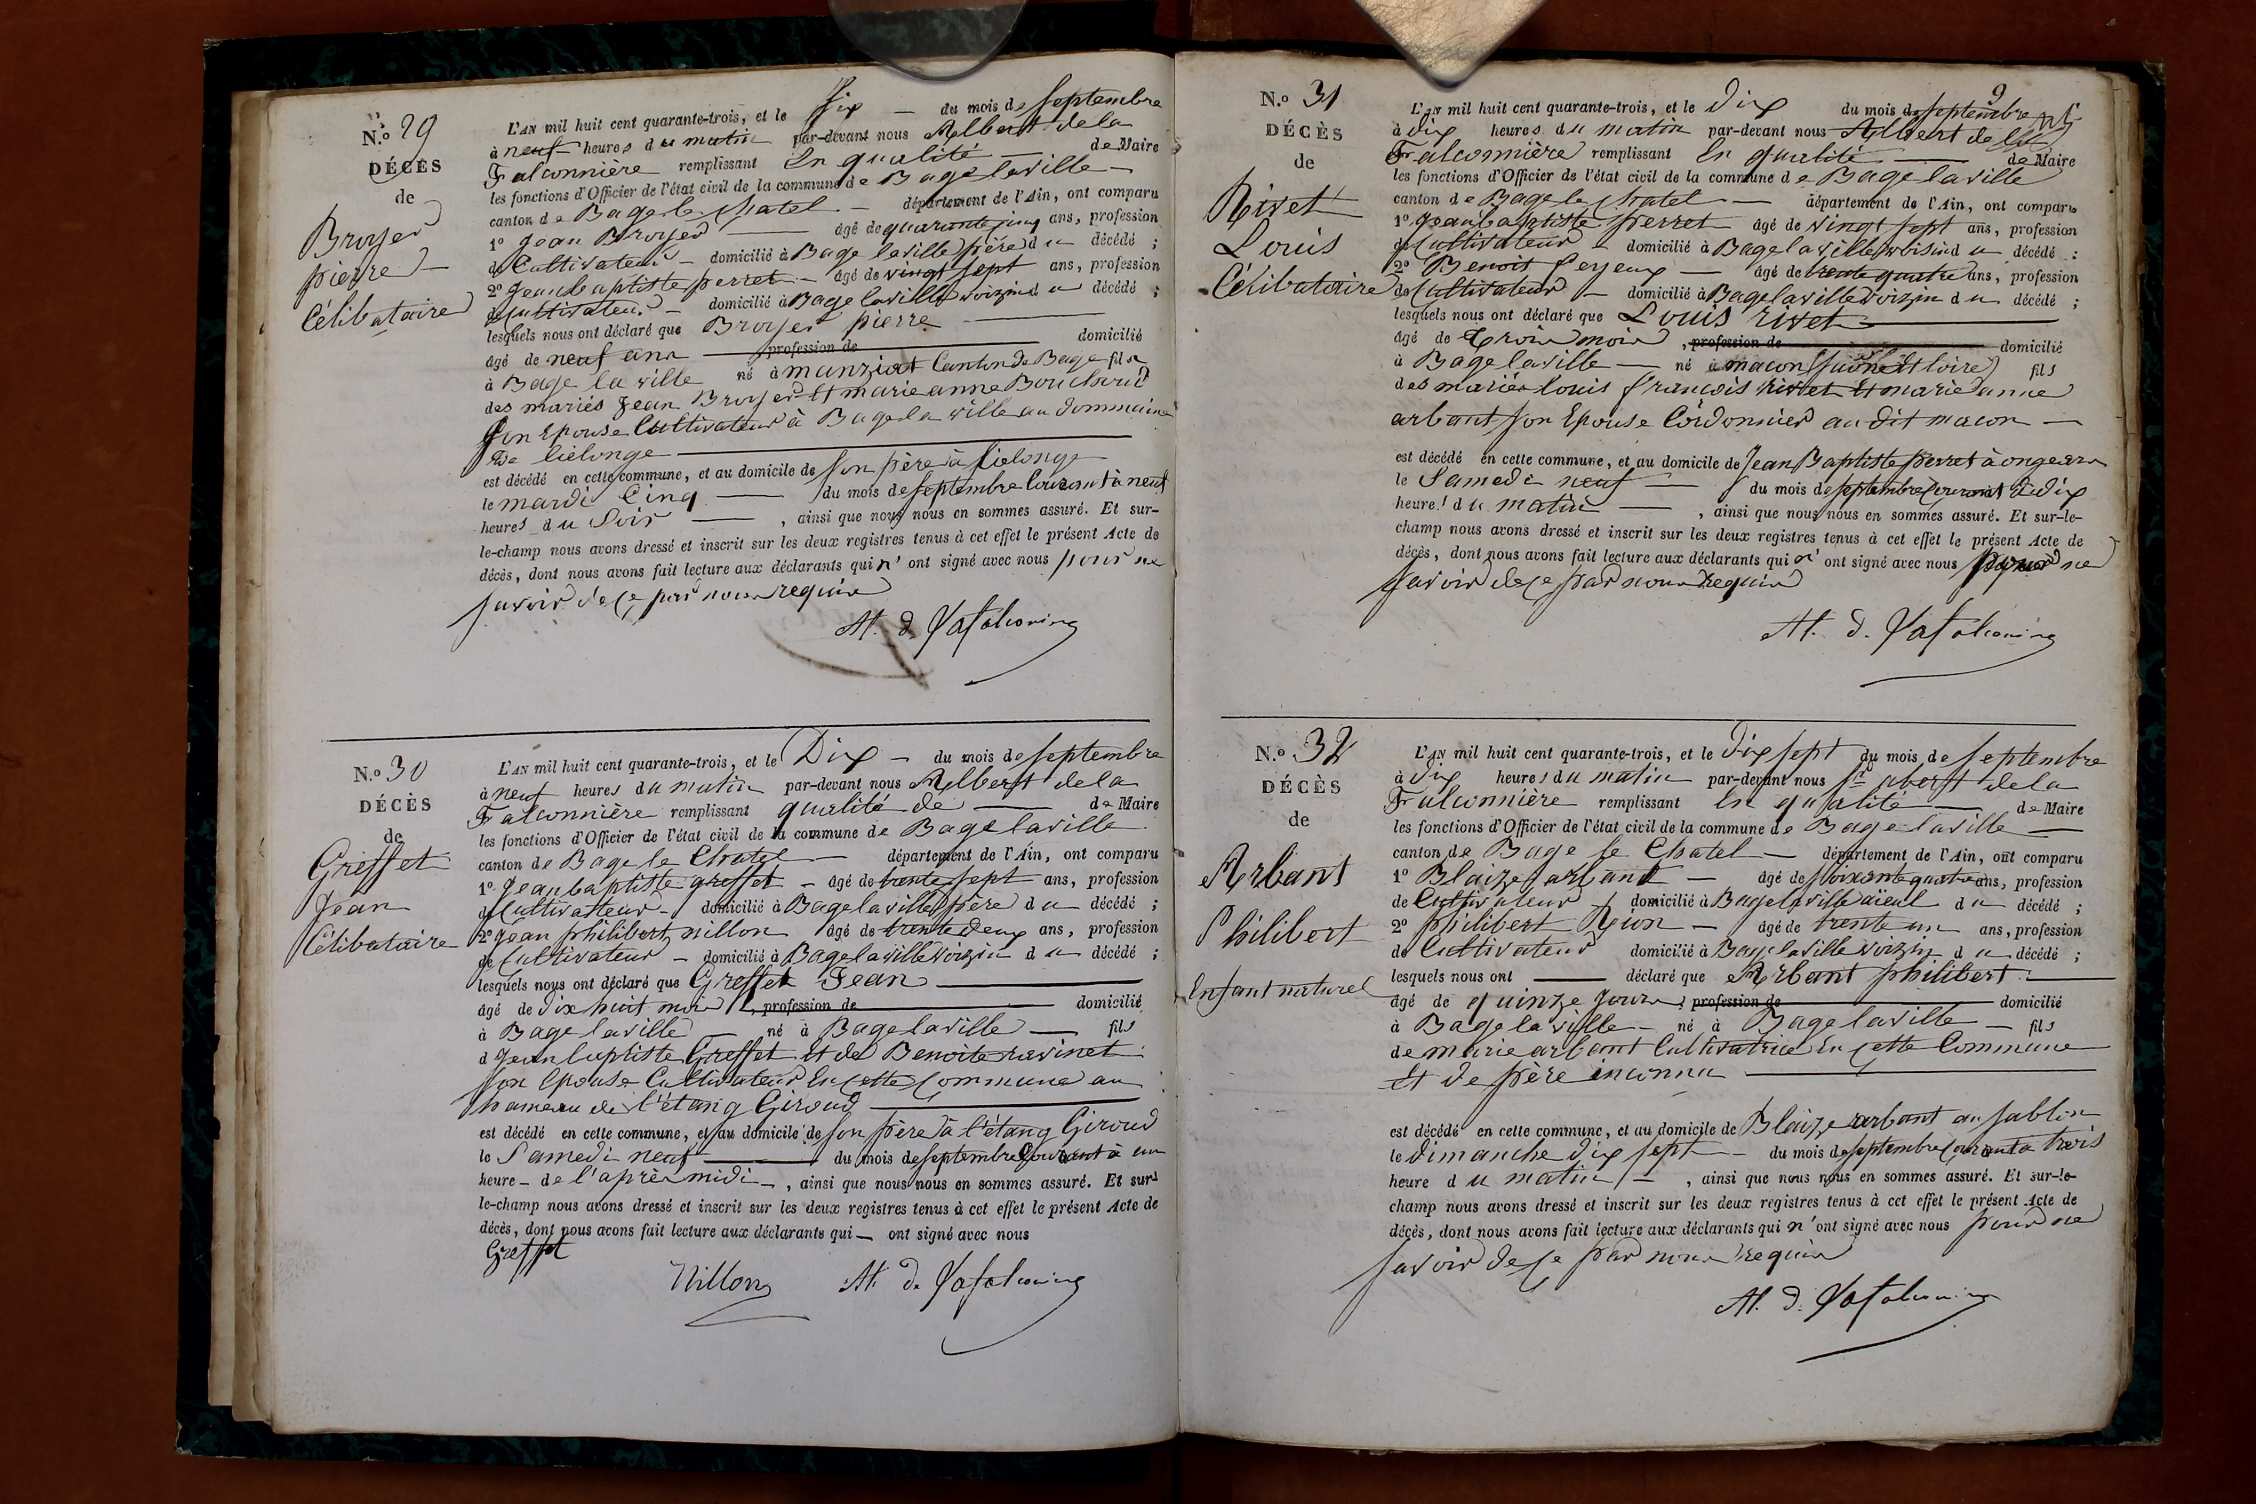 N.º 29
DÉCÈS
de
Broyer
pierre
Célibataire
L'AN mil huit cent quarante-trois, et le Six du mois de septembre
à neuf heures du matin par-devant nous Albert de la
Falconnière remplissant En qualité de Maire
les fonctions d'Officier de l'état civil de la commune de Bage laville
canton de Bage le chatel département de l'Ain, ont comparu
1º Jean Broyer âgé de quarante cinq ans, profession
de Cultivateur domicilié à Bage laville père du décédé ;
2º Jean baptiste perret âgé de vingt sept ans, profession
de Cultivateur domicilié à Bage laville voizin du décédé ;
lesquels nous ont déclaré que Broyer pierre
âgé de neuf ans profession de domicilié
à Bage la ville né à manziat Canton de Bage fils
des mariés Jean Broyer Et marie anne Bouchard
son Epouse Cultivateur à Bage la ville au dommaine
De lielonge
est décédé en cette commune, et au domicile de son père à lielonge
le mardi Cinq du mois de septembre Courant à neuf
heures du Soir , ainsi que nous nous en sommes assuré. Et sur-
le-champ nous avons dressé et inscrit sur les deux registres tenus à cet effet le présent Acte de
décès, dont nous avons fait lecture aux déclarants qui n' ont signé avec nous pour ne
savoir de ce par nous requis
Al. d. Lafalconing
N.º 30
DÉCÈS
de
Greffet
Jean
Célibataire
L'AN mil huit cent quarante-trois, et le Dix du mois de septembre
à neuf heures du matin par-devant nous Albert de la
Falconnière remplissant qualité de de Maire
les fonctions d'Officier de l'état civil de la commune de Bage laville
canton de Bage le Chatel département de l'Ain, ont comparu
1º Jean baptiste greffet âgé de trente sept ans, profession
de Cultivateur domicilié à Bage laville père du décédé ;
2º Jean philibert nillon âgé de trente deux ans, profession
de Cultivateur domicilié à Bage laville Voizin du décédé ;
lesquels nous ont déclaré que Greffet Jean
âgé de dix huit mois , profession de domicilié
à Bage laville né à Bage laville fils
d Jean baptiste Greffet Et de Benoite ravinet
son Epouse Cultivateur En cette Commune au
hameau de l'étang Giroud
est décédé en cette commune, et au domicile de son père à l'étang Giroud
le Samedi neuf du mois de septembre Courant à un
heure de l'après midi , ainsi que nous nous en sommes assuré. Et sur
le-champ nous avons dressé et inscrit sur les deux registres tenus à cet effet le présent Acte de
décès, dont nous avons fait lecture aux déclarants qui ont signé avec nous
Greffet
Nillon Al. d. Lafalconing
9
N.º 31
DÉCÈS
de
Rivet
Louis
Célibataire
L'AN mil huit cent quarante-trois, et le Dix du mois de septembre
à dix heures du matin par-devant nous Albert de la
Falconnière remplissant En qualité de Maire
les fonctions d'Officier de l'état civil de la commune de Bage laville
canton de Bage le chatel département de l'Ain, ont comparu
1º Jean baptiste perret âgé de vingt sept ans, profession
de Cultivateur domicilié à Bage laville voisin du décédé :
2º Benoit âgé de trente quatre ans, profession
de Cultivateur domicilié à Bage laville voizin du décédé ;
lesquels nous ont déclaré que Louis rivet
âgé de trois mois , profession de domicilié
à Bage laville né à macon (saône Et loire) fils
des mariés louis françois rivet Et marie anne
arbant son Epouse Cordonnier au dit macon
est décédé en cette commune, et au domicile de Jean Baptiste perret à ongears
le Samedi neuf du mois de septembre Courant à dix
heures du matin , ainsi que nous nous en sommes assuré. Et sur-le-
champ nous avons dressé et inscrit sur les deux registres tenus à cet effet le présent Acte de
décès, dont nous avons fait lecture aux déclarants qui n' ont signé avec nous pour ne
savoir de ce par nous requis
Al. d. Lafalconing
N.º 32
DÉCÈS
de
Arbant
Philibert
Enfant naturel
L'AN mil huit cent quarante-trois, et le Dix sept du mois de septembre
à dix heures du matin par-devant nous Sr abert de la
Falconnière remplissant En qualité de Maire
les fonctions d'Officier de l'état civil de la commune de Bage laville
canton de Bage le Chatel département de l'Ain, ont comparu
1º Blaize arbant âgé de soixante quatre ans, profession
de Cultivateur domicilié à Bage laville aieul du décédé ;
2º philibert Réion âgé de trente un ans, profession
de Cultivateur domicilié à Bage laville voizin du décédé ;
lesquels nous ont déclaré que Arbant philibert
âgé de quinze jours , profession de domicilié
à Bage la ville né à Bage laville fils
de marie arbant Cultivatrice En cette Commune
Et de père inconnu
est décédé en cette commune, et au domicile de Blaize arbant au sablon
le dimanche dix sept du mois de septembre Courant à trois
heure du matin , ainsi que nous nous en sommes assuré. Et sur-le-
champ nous avons dressé et inscrit sur les deux registres tenus à cet effet le présent Acte de
décès, dont nous avons fait lecture aux déclarants qui n' ont signé avec nous pour ne
savoir de ce par nous requis
Al. d. Lafalconing